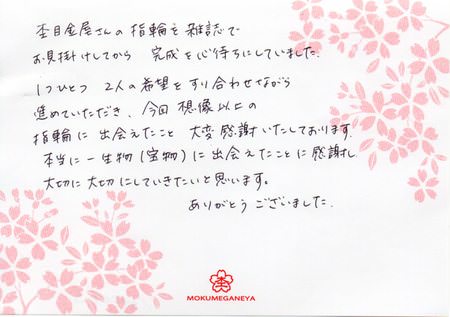 杢目金屋さんの指輪を雑誌で
お見掛けしてから 完成を心待ちにしていました.
1つひとつ 2人の希望をすり合わせながら
進めていただき、今回 想像以上の
指輪に出会えたこと 大変感謝いたしております.
本当に一生物(宝物)に出会えたことに感謝し
大切に大切にしていきたいと思います。
ありがとうございました.
杢
MOKUMEGANEYA